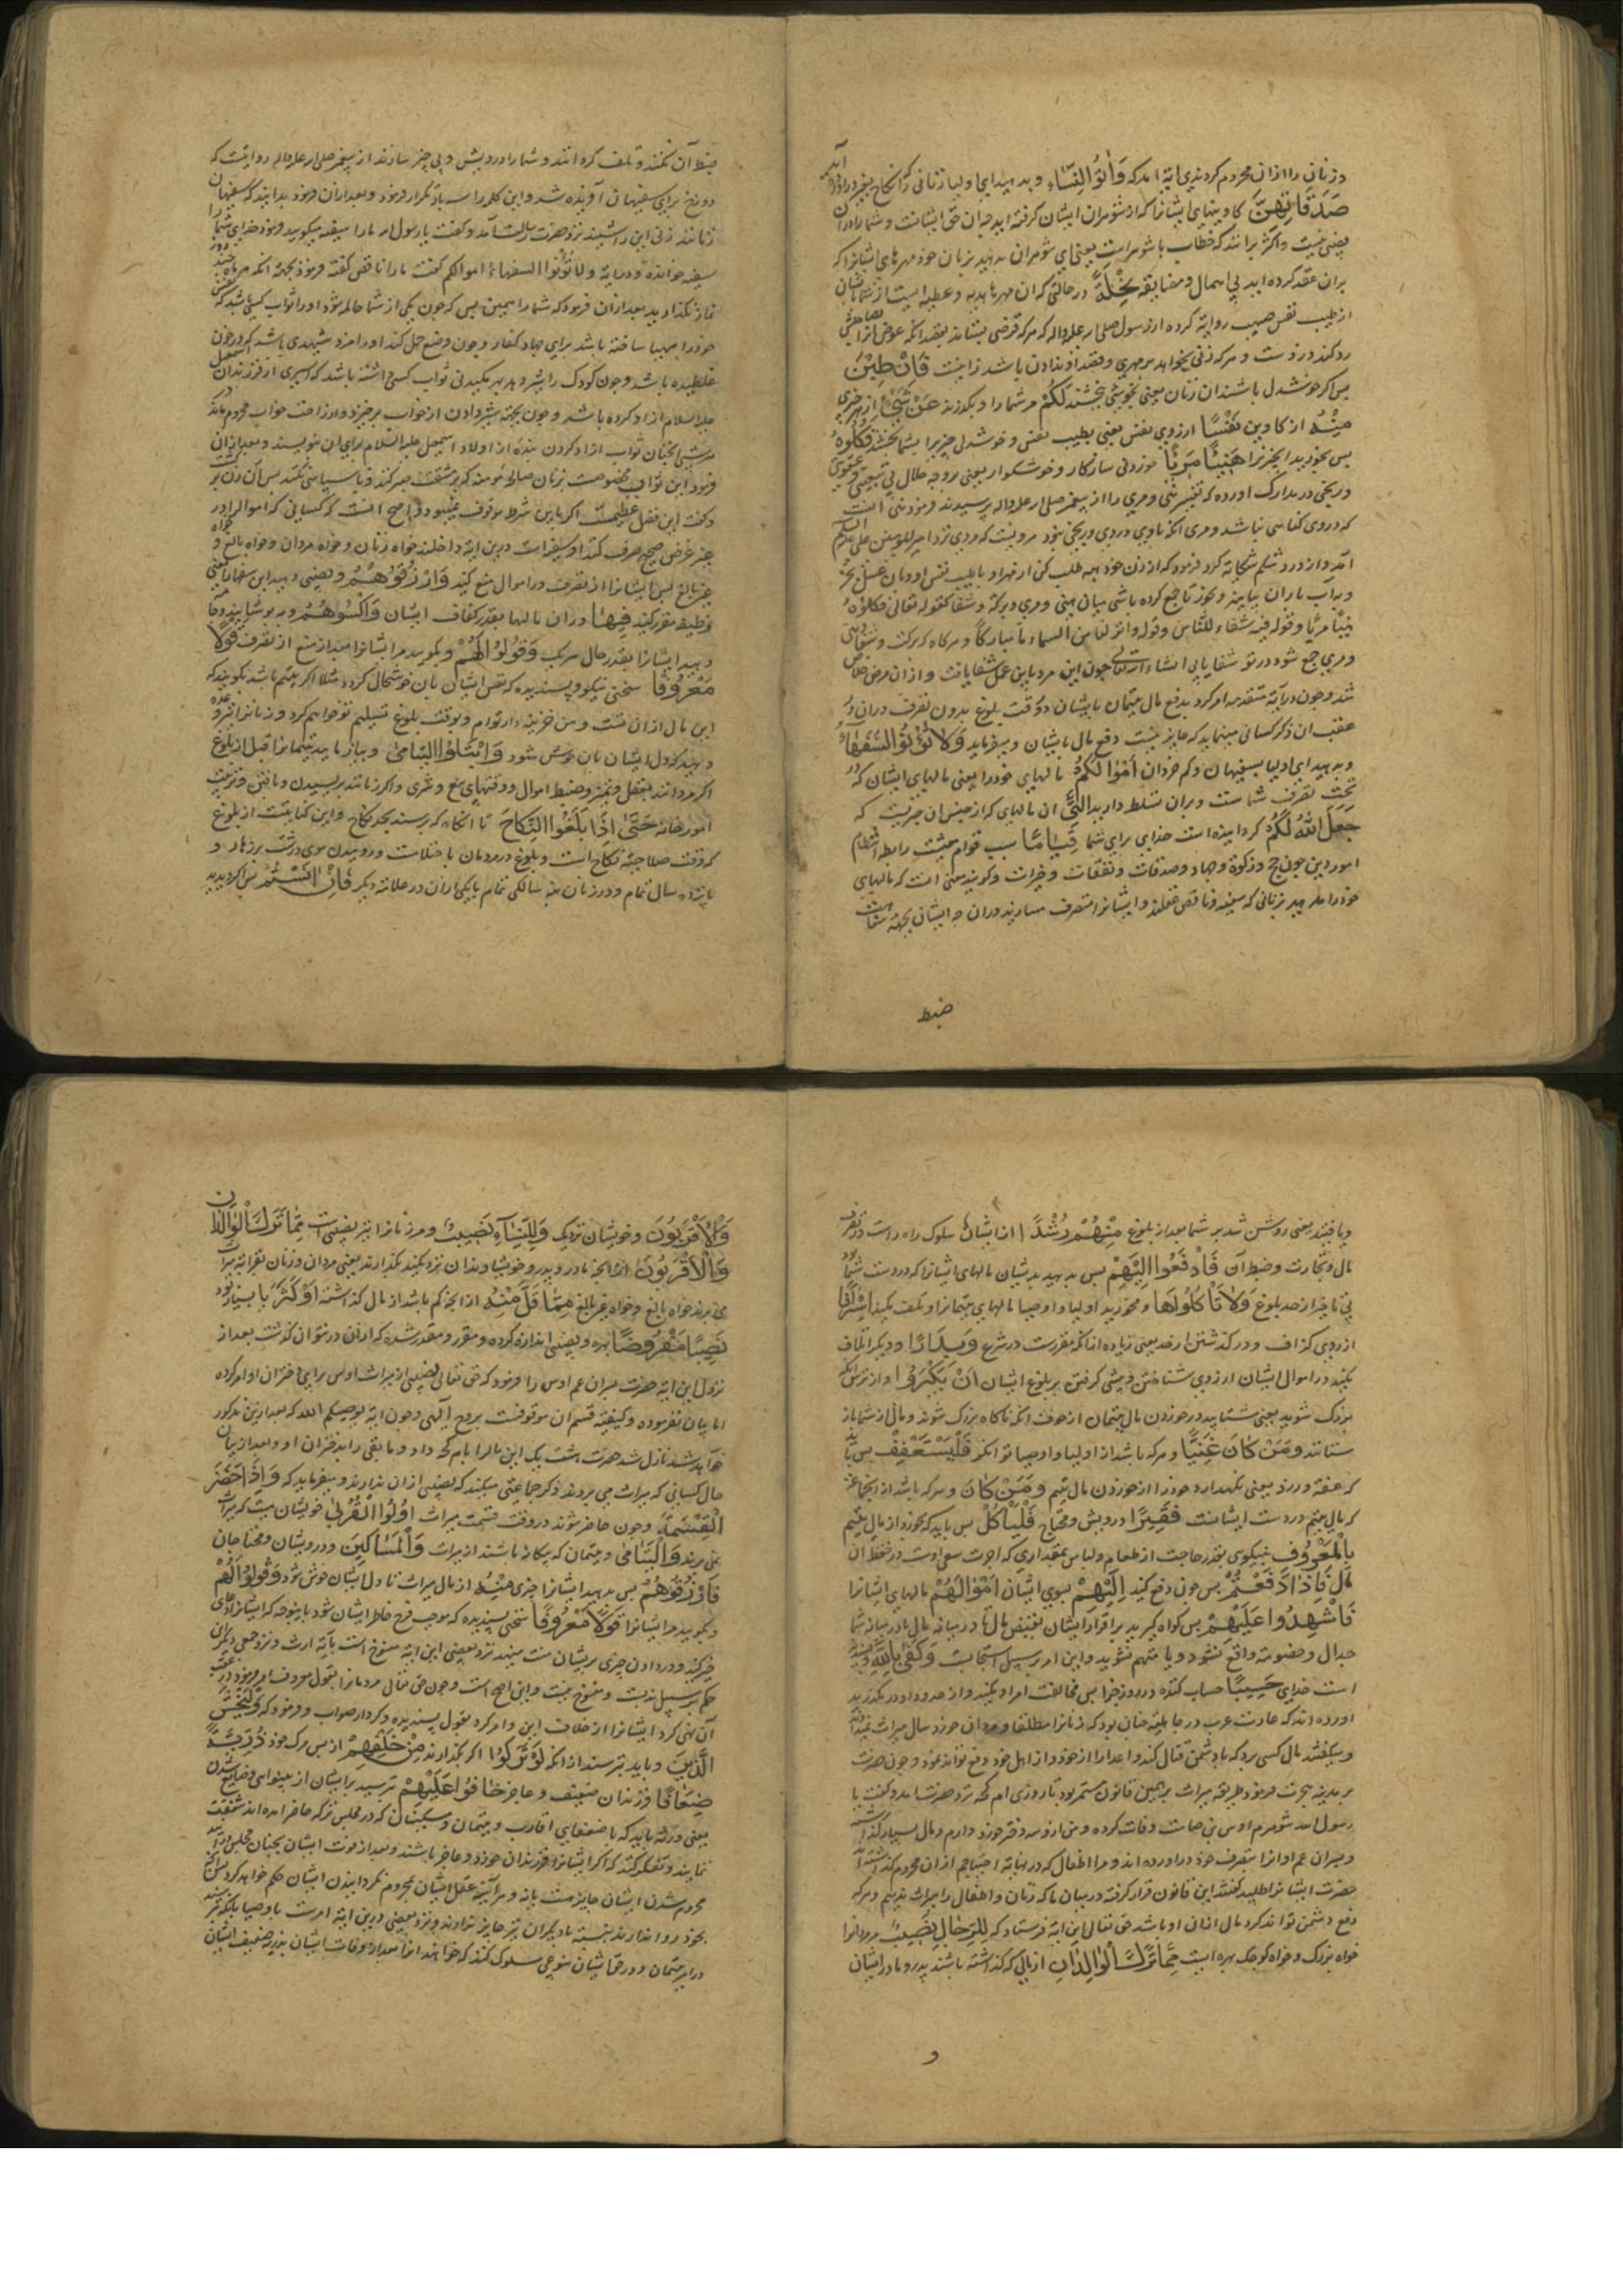 و زنان را ازان محروم کردندی ایة امد که وَاٰتُوا النِّسَاءَ و بدهید ای اولیا زنانی را که نکاح
صَدُقَاتِهِنَّ کاوینهای ایشانرا که از شوهران ایشان گرفته اید چه ان حق ایشانست و شما را دران
نصیبی نیست و اکثر برانند که خطاب با شوهرانست یعنی ای شوهران بدهید بزنان خود مهرهای ایشانرا که
بران عقد کرده اید بی اهمال و مضایقه نِحْلَةً در حالتی که ان مهرها هدیه و عطیه ایست از شما
از طیب نفس روایة کرده از رسول صلی الله علیه واله که هرکه قرضی بستاند بقصد انکه عوض انرا
رد نکند دزدست و هرکه زنی بخواهد بر مهری و قصد او ندادن باشد زانیست فَاِنْ طِبْنَ
پس اکر خوشدل باشند ان زنان یعنی بخوشی بخشند لَكُمْ مر شما را و بکذرند عَنْ شَيْءٍ از چیزی
مِنْهُ از کاوین نَفْسًا ازروی نفس یعنی بطیب نفس و خوشدلی چیزیرا بشما بخشند فَكُلُوهُ
پس بخورید انچیز را هَنِيئًا مَرِيئًا خوردنی سازکار و خوشکوار یعنی بروجه حلال بی تبعتی
و در مدارک اورده که تفسیر هنی و مری را از پیغمبر صلی الله علیه واله پرسیدند فرمود هنی انست
که دروی کناهی نباشد و مری انکه باوی دردی و رنجی نبود مرویست که مردی نزد امیرالمومنین علی علیه السلم
آمد و از درد شکم شکایة کرد فرمود که از زن خود هبه طلب کن از مهر او با طیب نفس او و بان عسل بخر
و به آب باران بیامیز و بخور تا جمع کرده باشی میان هنی و مری و برکة و شفا کقوله تعالی فکلوه
هنیئا مریئا و قوله فیه شفاء للناس و قوله وانزلنا من السماء ماء مبارکا و هرکاه که برکت و شفا و هنی
و مری جمع شود در تو شفا یابی انشاء الله تعالی چون این مرد باین عمل شفا یافت و ازان مرض خلاص
شد و چون در آیة متقدمه امر کرد بدفع مال یتیمان بایشان در وقت بلوغ بدون تصرف دران در
عقب ان ذکر کسانی مینماید که جایز نیست دفع مال بایشان و میفرماید وَلَا تُؤْتُوا السُّفَهَاءَ
و مدهید ای اولیا بسفیهان و کم خردان اَمْوَالَكُمُ مالهای خود را یعنی مالهای ایشان که در
تحت تصرف شماست و بران تسلط دارید الَّتِي ان مالهای که از جنس ان چیزیست که
جَعَلَ اللّٰهُ لَكُمْ کردانیده است خدای برای شما قِيَامًا سبب قوام معیشت رابطه انتظام
امور دین چون حج و زکوة و جهاد و صدقات و نفقات و خیرات و کویند معنی انست که مالهای
خود را مدهید بزنانی که سفیه و ناقص عقلند و ایشانرا متصرف مسازید دران چه ایشان بجهة سفاهت
ضبط
ضبط آن نکنند و تلف کردانند و شما را درویش و بی چیز سازند از پیغمبر صلی الله علیه واله روایتست که
دوزخ برای سفیهان آفریده شد و این کلمه را سه بار تکرار فرمود و بعد ازان فرمود بدانید که سفیهان
زنانند زنی این را شنید نزد حضرت رسالت آمد و کفت یا رسول الله ما را سفیه میکویید فرمود خدای شما را
سفیه خوانده در آیة و لا تؤتوا السفهاء اموالکم کفت ما را ناقص کفته فرمود بجهة انکه هر ماه چند روز
نماز نکذارید بعد ازان فرمود که شما را همین بس که چون یکی از شما حامله شود او را ثواب کسی باشد که
خود را مهیا ساخته باشد برای جهاد کفار و چون وضع حمل کند او را مزد شهیدی باشد که در خون
غلطیده باشد و چون کودک را شیر دهد بهر مکیدنی ثواب کسی داشته باشد که اسیری از فرزندان اسمعیل
علیه السلام ازاد کرده باشد و چون بجهة شیر دادن از خواب برخیزد و از راحت خواب محروم ماند در
هر شبی انچنان ثواب ازاد کردن بندۀ از اولاد اسمعیل علیه السلام برای ان بنویسند و بعد ازان
فرمود این ثواب مخصوصست بزنان صالحه مومنه که بر مشقت صبر کنند و ناسپاسی نکنند پس آن زن برخاست
و کفت این فضل عظیمست اکر باین شرط موقوف نمیبود و اصح انست که کسانی که اموال را در
غیر غرض صحیح صرف کنند او سفیه است درین ایة داخلند خواه زنان و خواه مردان و خواه بالغ و خواه
غیر بالغ پس ایشانرا از تصرف در اموال منع کنید وَارْزُقُوهُمْ و نصیبی دهید این سفها را یعنی
وظیفه مقرر کنید فِيهَا دران مالها بقدر کفاف ایشان وَاكْسُوهُمْ و بپوشانید
و بدهید ایشانرا بقدر حال هر یک وَقُولُوا لَهُمْ و بکویید مر ایشانرا بعد از منع از تصرف قَوْلًا
مَعْرُوفًا سخنی نیکو و پسندیده که نفس ایشان بان خوشحال کردد مثلا اکر یتیم باشد بکویید که
این مال ازان تست و من خزینه دار توام و بوقت بلوغ تسلیم تو خواهم کرد و زنانرا نیز وعده
دهید که دل ایشان بان خوش شود وَابْتَلُوا الْيَتَامٰى و بیازمایید یتیمانرا قبل از بلوغ
اکر مردانند بعقل و تمیز و ضبط اموال و وقوفهای بیع و شری و اکر زنانند بریسیدن و بافتن و ترتیب
امور خانه حَتّٰى اِذَا بَلَغُوا النِّكَاحَ تا انکاه که برسند بحد نکاح و این کنایتست از بلوغ
که وقت صلاحیة نکاح است و بلوغ در مردمان باحتلامست و روییدن موی درشت بر زهار و
پانزده سال تمام و در زنان بنه سالکی تمام یا یکی ازان دو علامة دیکر فَاِنْ اٰنَسْتُمْ پس اکر دیدید
و یابید یعنی روشن شد بر شما بعد از بلوغ مِنْهُمْ رُشْدًا از ایشان سلوک راه راست در تصرف
مال و تجارت و ضبط آن فَادْفَعُوا اِلَيْهِمْ پس بدهید بدیشان مالهای ایشانرا که در دست شما بود
بی تاخیر از حد بلوغ وَلَا تَاْكُلُوهَا و مخورید اولیا و اوصیا مالهای یتیمانرا و تلف مکنید اِسْرَافًا
ازروی کزاف و در کذشتن از حد یعنی زیاده ازانکه مقررست در شرع وَبِدَارًا و دیکر اتلاف
مکنید در اموال ایشان ازروی شتافتن و پیشی کرفتن بر بلوغ ایشان اَنْ يَكْبَرُوا و از ترس انکه
بزرک شوند یعنی مشتابید در خوردن مال یتیمان از خوف انکه ناکاه بزرک شوند و مال از شما باز
ستانند وَمَنْ كَانَ غَنِيًّا و هرکه باشد از اولیا و اوصیا توانکر فَلْيَسْتَعْفِفْ پس باید
که عفة ورزد یعنی نکهدارد خود را از خوردن مال یتیم وَمَنْ كَانَ و هرکه باشد از انجماعة
که مال یتیم در دست ایشانست فَقِيرًا درویش و محتاج فَلْيَاْكُلْ پس باید که بخورد از مال یتیم
بِالْمَعْرُوفِ بنیکویی بقدر حاجت از طعام و لباس بمقداری که اجرت سعی اوست در حفظ ان
مال فَاِذَا دَفَعْتُمْ پس چون دفع کنید اِلَيْهِمْ بسوی ایشان اَمْوَالَهُمْ مالهای ایشانرا
فَاَشْهِدُوا عَلَيْهِمْ پس کواه کیرید بر اقرار ایشان بقبض مال تا در میانه مال یا در میانه شما
جدال و خصومة واقع نشود و یا متهم نشوید و این امر بر سبیل استحبابست وَكَفٰى بِاللّٰهِ و بسنده
است خدای حَسِيبًا حساب کننده در روز جزا پس مخالفت امر او مکنید و از حدود او در مکذرید
اورده اند که عادت عرب در جاهلیة چنان بود که زنانرا مطلقا و مردان خورد سال میراث نمیدادند
و میکفتند مال کسی برد که با دشمن قتال کند و اعدا را از خود و از اهل خود دفع تواند نمود و چون حضرت
بمدینه هجرت فرمود طریقه میراث بر همین قانون مستمر بود تا روزی ام کحه نزد حضرت امد و کفت یا
رسول الله شوهرم اوس بن صامت وفات کرده و من ازو سه دختر خورد دارم و مال بسیار کذاشته
و پسران عم او انرا بتصرف خود دراورده اند و مرا و اطفال که در نهایة احتیاجیم ازان محروم کذاشته اند
حضرت ایشانرا طلبید کفتند این قانون قرار کرفته در میان ما که زنان و اطفال را میراث ندهیم و هرکه
دفع دشمن تواند کرد مال ازان او باشد حق تعالی این ایة فرستاد که لِلرِّجَالِ نَصِيبٌ مردانرا
خواه بزرک و خواه کوچک بهره ایست مِمَّا تَرَكَ الْوَالِدَانِ از مالی که کذاشته باشند پدر و مادر ایشان
و
وَالْاَقْرَبُونَ و خویشان نزدیک وَلِلنِّسَاءِ نَصِيبٌ و مر زنانرا نیز نصیبی است مِمَّا تَرَكَ الْوَالِدَانِ
وَالْاَقْرَبُونَ از انچه مادر و پدر و خویشاوندان نزدیک بکذارند یعنی مردان و زنان بقرابة میراث
می برند خواه بالغ و خواه غیر بالغ مِمَّا قَلَّ مِنْهُ از انچه کم باشد از مال کذاشته اَوْ كَثُرَ یا بسیار بود
نَصِيبًا مَفْرُوضًا بهره و نصیبی اندازه کرده و مقرر و مقدر شده که ازان در نتوان کذشت بعد از
نزول این ایة حضرت پسران عم اوس را فرمود که حق تعالی نصیبی از میراث اوس برای دختران او امر کرده
اما بیان نفرموده و کیفیة قسم ان موقوفست بوحی الهی و چون ایة یوصیکم الله که بعد ازین مذکور
خواهد شد نازل شد حضرت هشت یک این مال را بام کحه داد و مابقی را بدختران او و بعد از بیان
حال کسانی که میراث می بردند ذکر جماعتی میکند که نصیبی ازان ندارند و میفرماید که وَاِذَا حَضَرَ
الْقِسْمَةَ و چون حاضر شوند در وقت قسمت میراث اُولُوا الْقُرْبٰى خویشان میت که میراث
نمی برند وَالْيَتَامٰى و یتیمان که بیکانه باشند از میراث وَالْمَسَاكِينُ و درویشان و محتاجان
فَارْزُقُوهُمْ پس بدهید ایشانرا چیزی مِنْهُ از مال میراث تا دل ایشان خوش شود وَقُولُوا لَهُمْ
و بکویید مر ایشانرا قَوْلًا مَعْرُوفًا سخنی پسندیده که موجب فرح خاطر ایشان شود باینوجه که ایشانرا دعای
خیر کنید و در دادن چیزی بریشان منت منهید نزد بعضی این ایة منسوخ است بآیة ارث و نزد جمعی دیکر این
حکم بر سبیل ندبست و منسوخ نیست و این اصح است و چون حق تعالی مردمانرا بقول معروف امر فرمود در عقب
آن نهی کرد ایشانرا از خلاف این و امر کرد بقول پسندیده و کردار صواب و فرمود که وَلْيَخْشَ
الَّذِينَ و باید بترسند ازانکه لَوْ تَرَكُوا اکر بکذارند مِنْ خَلْفِهِمْ از پس مرک خود ذُرِّيَّةً
ضِعَافًا فرزندان ضعیف و عاجز خَافُوا عَلَيْهِمْ ترسید بر ایشان از بینوایی و ضایع شدن
یعنی ورثه باید که با ضعفای اقارب و یتیمان و مسکینان که در مجلس ترکه حاضر امده اند شفقت
نمایند و تفکر کنند که اکر ایشانرا فرزندان خورد و عاجز باشند و بعد از موت ایشان بچنان مجلس درآیند
محروم شدن ایشان جایز هست یا نه و هر آینه عقل ایشان بمحروم نکردانیدن ایشان حکم خواهد کرد پس انچه
بخود روا ندارند بنسبة با دیکران نیز جایز ندارند و نزد بعضی درین ایة امرست باوصیا بانکه بترسند
در امر یتیمان و در حق ایشان بنوعی سلوک کنند که خواهند انرا بعد از وفات ایشان بذریه ضعیف ایشان